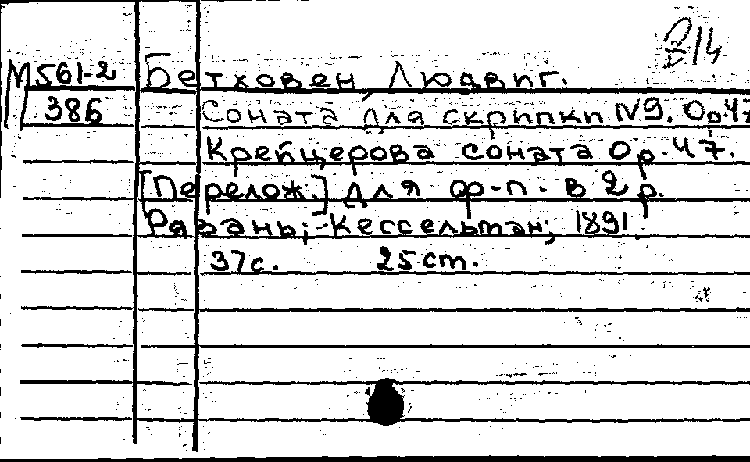 В14
М561-2 Бетховен, Людвиг.
386 Соната для скрипки N9. Op.47
Крейцерова соната Op.47.
[Перелож.] для ф-п. в 2 р.
Рязань; Кессельман; 1891.
37с. 25 cm.